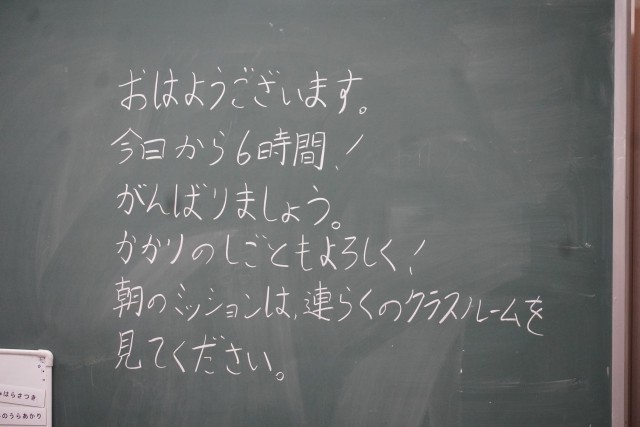 おはようございます。
今日から6時間!
がんばりましょう。
かかりのしごともよろしく!
朝のミッションは、連らくのクラスルームを
見てください。
はらさつき
のうらあかり